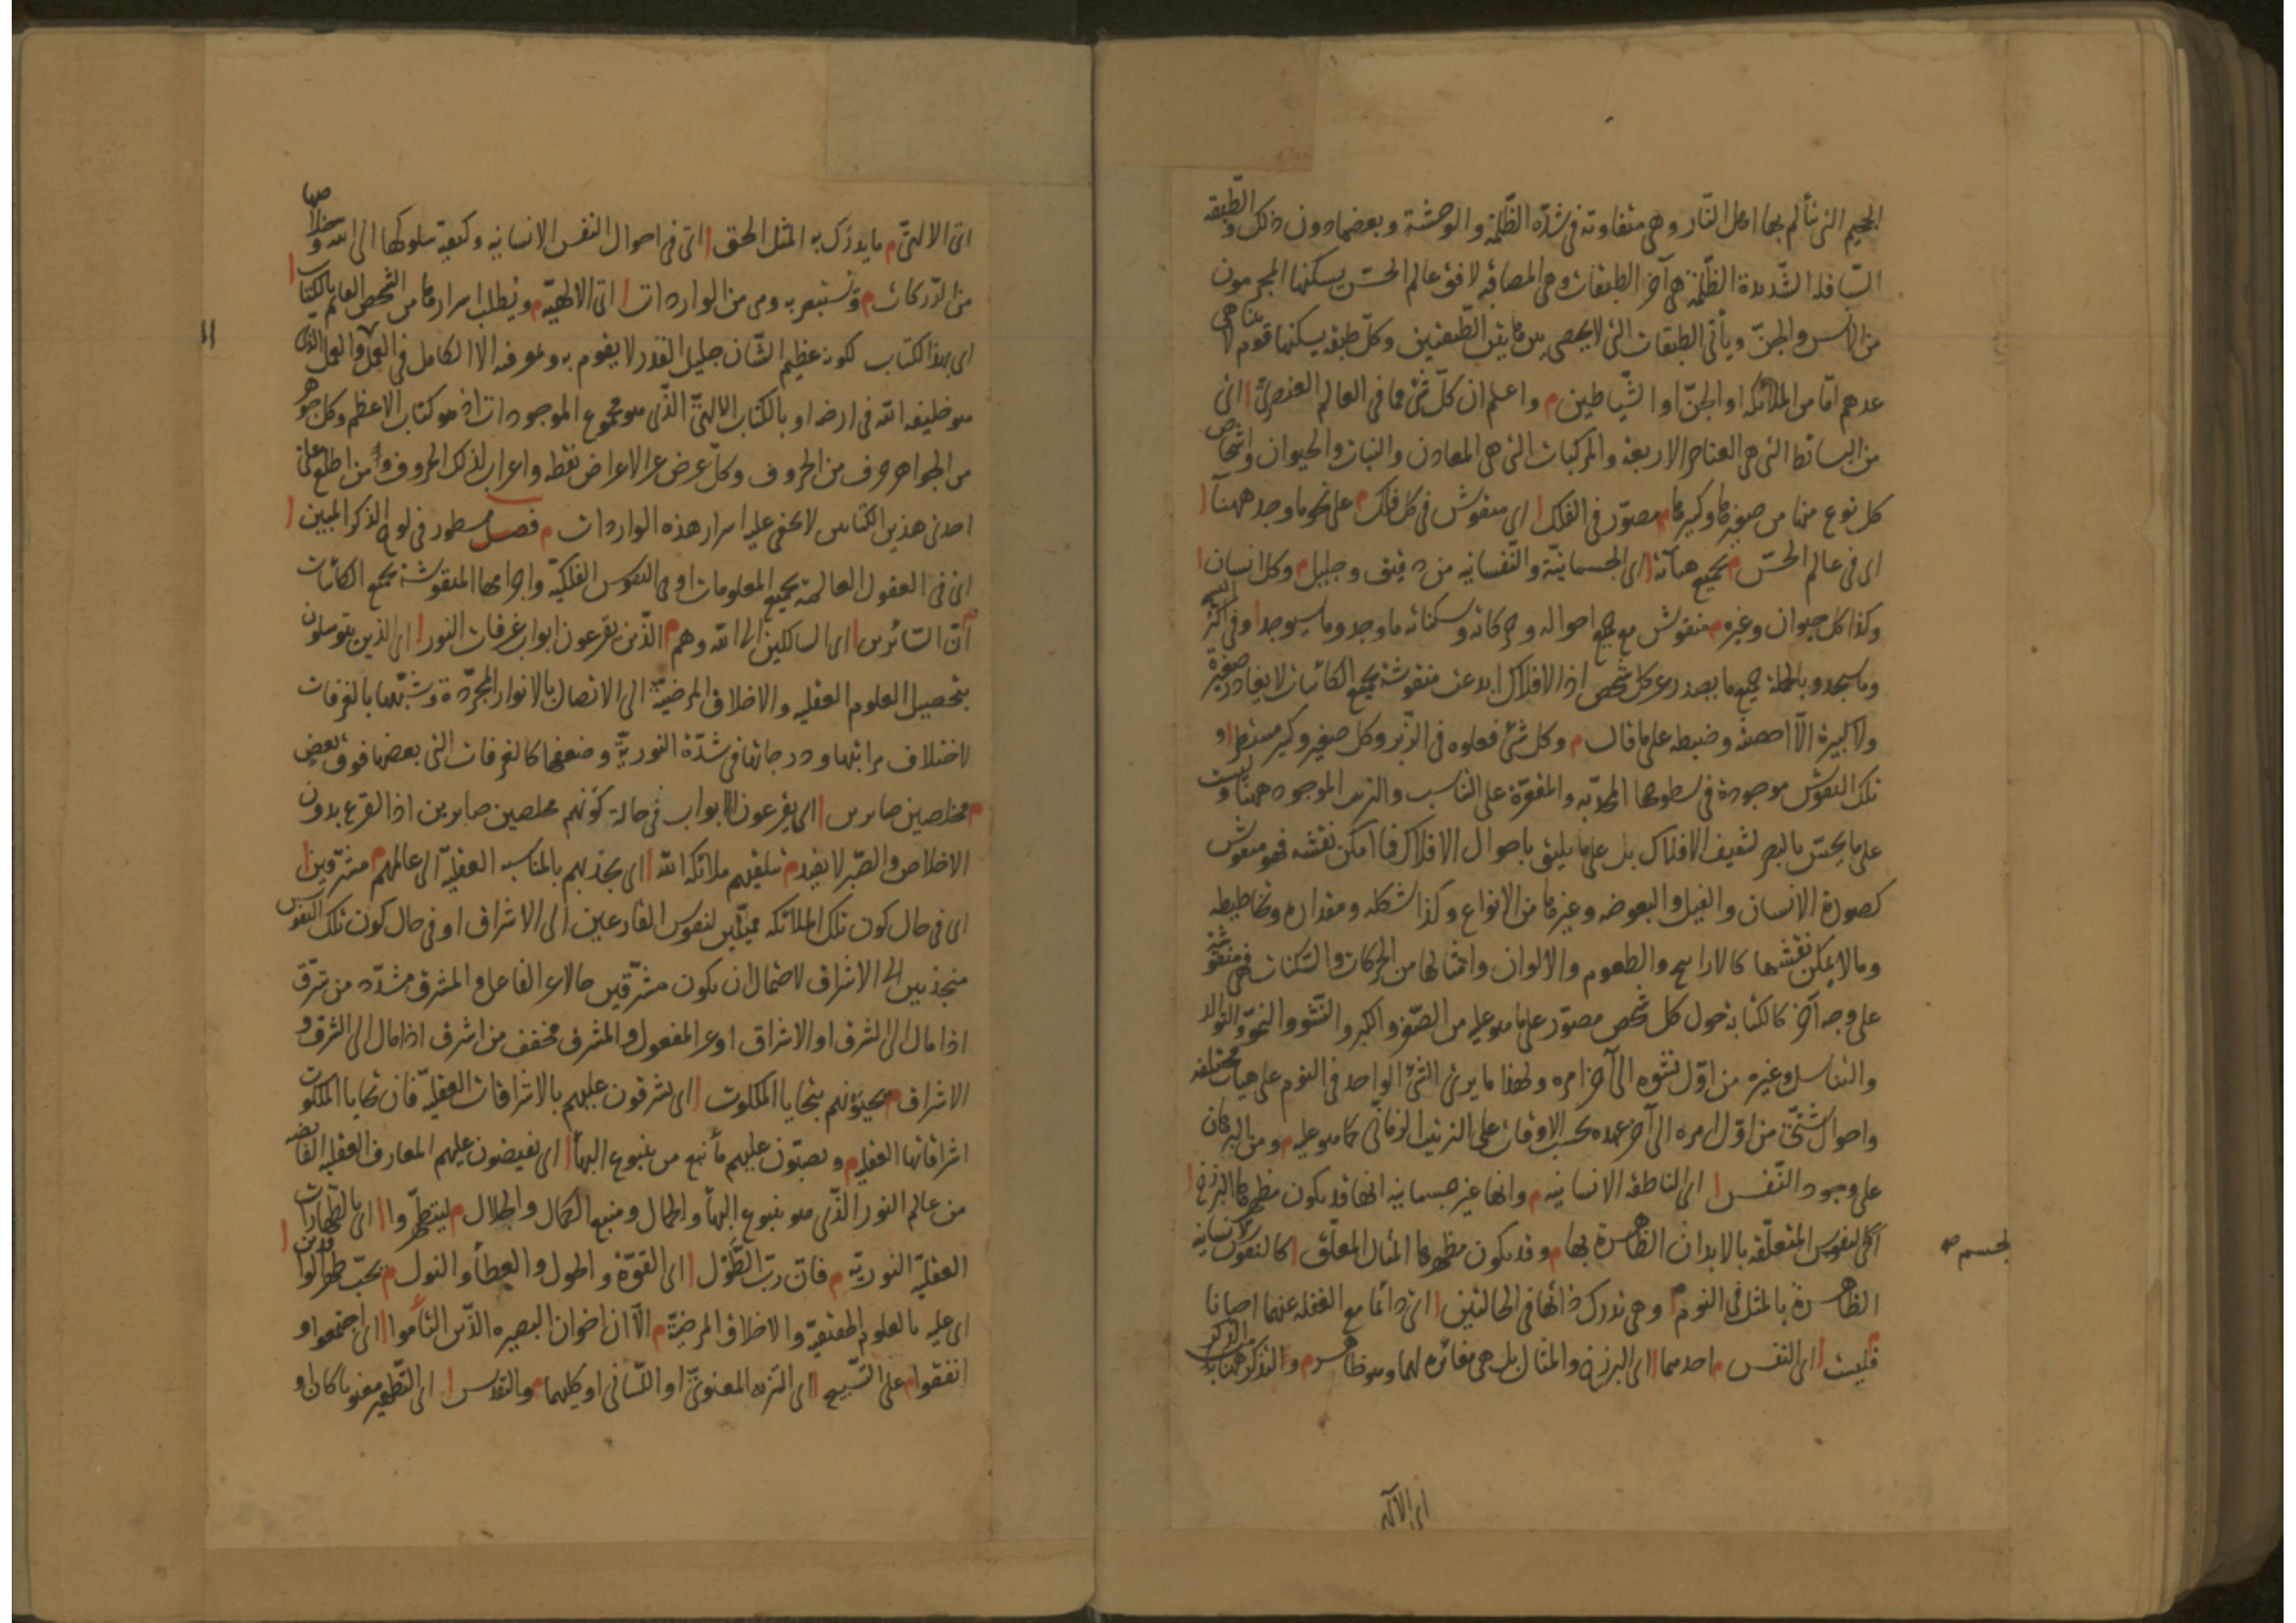 الجحيم التى يتألم بها اهل النار وهى متفاوتة فى شدّة الظّلمة والوحشة وبعضها دون ذلك والطّبقه
السّافله الشّديدة الظّلمة هى آخر الطبقات وهى المصاقبه لافق عالم الحسّ يسكنها المجرمون
من الانس والجنّ وباقى الطبقات التى لا يحصى من ما بين الطّبقتين وكلّ طبقه يسكنها قوم لا يتناهى
عددهم امّا من الملائكه او الجنّ او الشّياطين م واعلم ان كلّ شئ مما فى العالم العنصرىّ ا اى
من البسائط التى هى العناصر الاربعه والمركبات التى هى المعادن والنبات والحيوان واشخاص
كل نوع منها من صغيرها وكبيرها م مصوّر فى الفلك ا اى منقوش فى كل فلك م على نحو ما وجد ههنا ا
اى فى عالم الحسّ م بجميع هيآته ا اى الجسمانيّة والنّفسانيه من دقيق وجليل م وكل انسان ا
وكذا كل حيوان وغيره م منقوش مع جميع احواله وحركاته وسكناته ما وجد وما سيوجد ا وفى اكثر النسخ
وما سيجد وبالجملة جميع ما يصدر عن كل شخص اذ الافلاك ابدعت منقوشة بجميع الكائنات لا يغادر صغيرة
ولا كبيرة الّا احصته وضبطه على ما قال م وكل شئ فعلوه فى الزّبر وكل صغير وكبير مستطر ا و
تلك النقوش موجودة فى سطوحها المحدّبه والمقعّرة على التناسب والترتيب الموجود ههنا وليست
على ما يحسّ بالبصر لشفيف الافلاك بل على ما يليق باحوال الافلاك فما امكن نقشه فهو منقوش
كصورة الانسان والفيل والبعوضه وغيرها من الانواع وكذا شكله ومقداره وتخاطيطه
وما لا يمكن نقشها كالاراييح والطعوم والالوان وامثالها من الحركات والسّكنات فهى منقوشة
على وجه آخر كالكتابة حول كل شخص مصوّر على ما هو عليه من الصّغر والكبر والنّشو والنموّ والتوالد
والتناسل وغيره من اوّل نشوه الى آخر امره ولهذا ما يرى الشئ الواحد فى النوم على هيات مختلفه
واحوال شتّى من اوّل امره الى آخر عهده بحسب الاوقات على الترتيب الزمانى كما هو عليه م ومن البرهان
على وجود النّفس ا اى الناطقه الانسانيه م وانها غير جسمانيه انها قد يكون مظهرها البرزخ ا
اى كالنفوس المتعلّقه بالابدان الظاهرة بها م وقد يكون مظهرها المثال المعلّق ا كالنفوس الانسانيه
الجسم صح
الظاهرة بالمثل فى النوم م وهى تدرك ذاتها فى الحالتين ا اى دائما مع الغفله عنهما احيانا
م فليست ا اى النفس م احدهما ا اى البرزخ والمثال بل هى مغائره لهما وهو ظاهر م والتذكر هنا
اى الآلهى
اى الالهىّ م ما يدرك به المثل الحق ا اى فى احوال النفس الانسانيه وكيفيّه سلوكها الى الله وخلاصها
من الدّركات م وتستبصر به ومى من الواردات ا اى الالهيّه م ويطلب اسرارها من الشخص القائم بالكتاب ا
اى بهذا الكتاب لكونه عظيم الشّان جليل القدر لا يقوم به وبمعرفته الا الكامل فى العلم والعمل الذى
هو خليفه الله فى ارضه او بالكتاب الالهىّ الذّى هو مجموع الموجودات اذ هو كتاب الاعظم وكل جوهر
من الجواهر حرف من الحروف وكلّ عرض من الاعراض نقطه واعراب لذلك الحروف ومن اطلع على
احد من هذين الكتابين لا يخفى عليه اسرار هذه الواردات م فصل مسطور فى لوح الذكر المبين ا
اى فى العقول العالمه بجميع المعلومات او فى النفوس الفلكيّة واجرامها المنقوشة بجميع الكائنات
م انّ السّائرين ا اى السالكين الى الله وهم م الذّين يقرعون ابواب غرفات النور ا اى الذين يتوسلون
بتحصيل العلوم العقليه والاخلاق المرضيّه الى الاتصال بالانوار المجرّدة وشبّهها بالغرفات
لاختلاف مراتبها ودرجاتها فى شدّة النوريّة وضعفها كالغرفات التى بعضها فوق بعض
م مخلصين صابرين ا اى يقرعون الابواب فى حالة كونهم مخلصين صابرين اذا القرع بدون
الاخلاص والصّبر لا يفيد م تتلقيهم ملائكه الله ا اى يجذبهم بالمناسبه العقليّه الى عالمهم م مشرّقين ا
اى فى حال كون تلك الملائكه مميلين لنفوس القارعين الى الاشراق او فى حال كون تلك النفوس
منجذبين الى الاشراق لاحتمال ان يكون مشرّقين حالا عن الفاعل والمشرق مشدّد من شرّق
اذا مال الى الشرق او الاشراق او عن المفعول والمشرق مخفف من اشرق اذا مال الى الشرق و
الاشراق م يحيّونهم بتحايا الملكوت ا اى يشرقون عليهم بالاشراقات العقليّه فان تحايا الملكوت
اشراقاتها العقليه م ويصبّون عليهم ماء نبع من ينبوع البهاء ا اى يفيضون عليهم المعارف العقليه الفائضه
من عالم النور الذّى هو ينبوع البهاء والجمال ومنبع الكمال والجلال م ليتطهّروا ا اى بالطّهارات
العقليّه النوريّه م فان ربّ الطّول ا اى القوّة والحول والعطاء والنول م يحبّ طهر الوافدين ا
اى عليه بالعلوم الحقيقيّه والاخلاق المرضيّة م الّا ان اخوان البصيره الذّين التأموا ا اى اجتمعوا و
اتفقوا م على التّسبيح ا اى التنزيه المعنوىّ او اللّسانى او كليهما م والتقديس ا اى التّطهير معنويا كان او